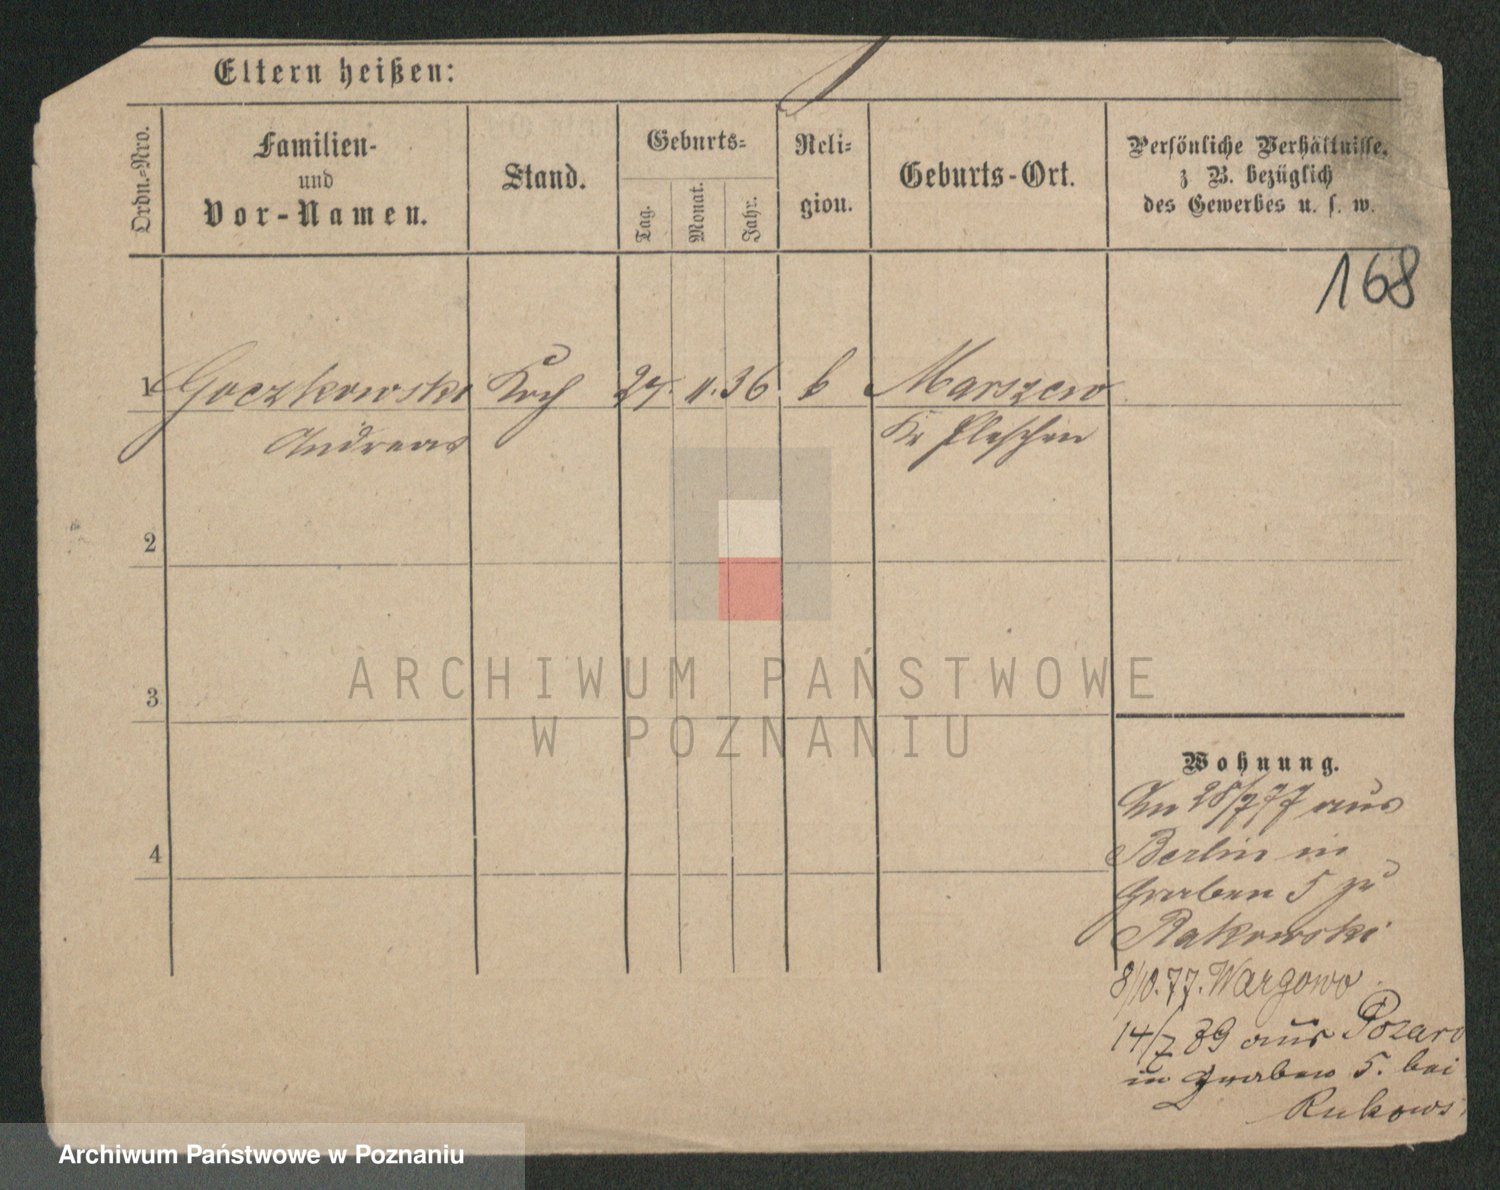 Eltern heißen:
Ordn.-Nro.
Familien-
und
Vor-Namen.
Stand.
Geburts-
Tag.
Monat.
Jahr.
Reli-
gion.
Geburts-Ort.
Persönliche Verhältnisse,
z B. bezüglich
des Gewerbes u. s. w.
168
1 Goczkowski Koch 27. 11. 36 k Marszewo
Andreas Kr Pleschen
2
3
4
Wohnung.
28/7 77 aus
Berlin in
Graben 5 zu
Rakowski
8/10.77. Wargowo.
14/7 89 aus Pozaro
in Graben 5. bei
Rukows
ARCHIWUM PAŃSTWOWE
W POZNANIU
Archiwum Państwowe w Poznaniu